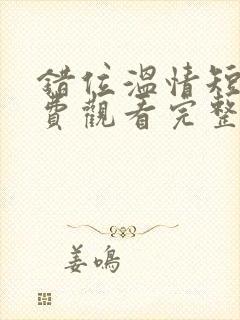 錯位溫情短
費觀看完整
姜鳴